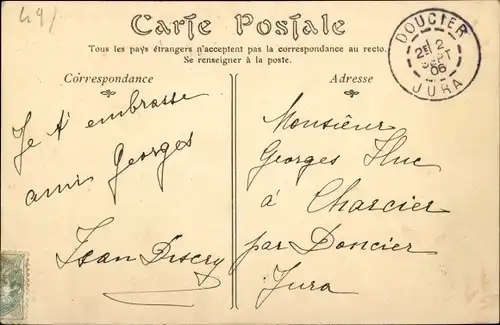 49/
Carte Postale
Tous les pays étrangers n'acceptent pas la correspondance au recto.
Se renseigner à la poste.
DOUCIER
2E 2
SEPT
06
JURA
Correspondance
Adresse
Je t'embrasse
ami Georges
Jean
Monsieur
Georges Huc
à Charcier
par Doucier
Jura